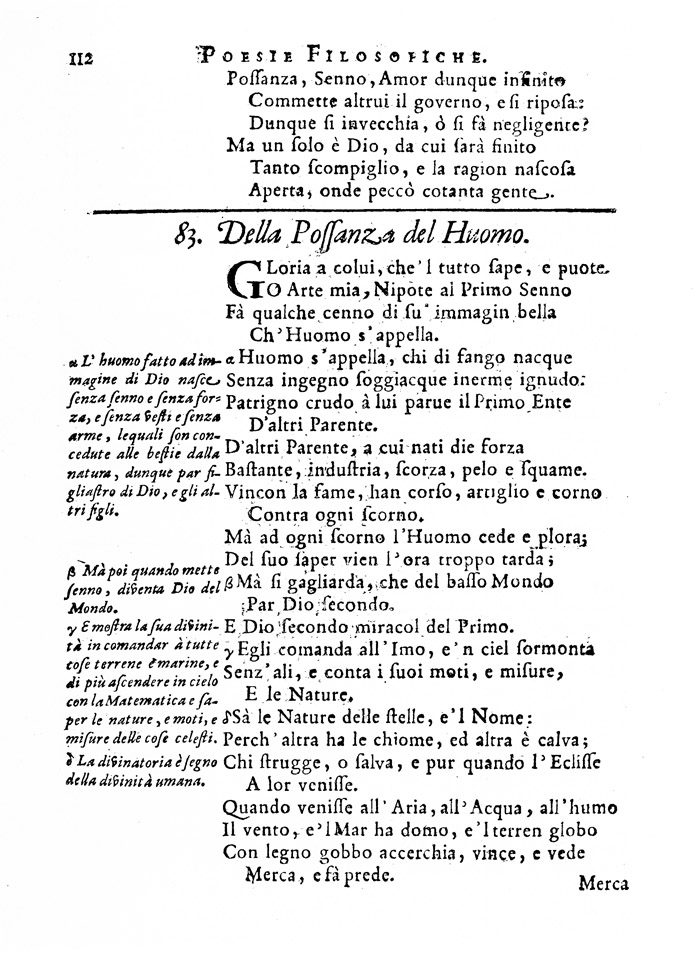 112 POESIE FILOSOFICHE.
Poſſanza, Senno, Amor dunque infinito
Commette altrui il governo, e ſi ripoſa:
Dunque ſi invecchia, ò ſi fà negligente?
Ma un ſolo è Dio, da cui ſarà finito
Tanto ſcompiglio, e la ragion naſcoſa
Aperta, onde peccò cotanta gente.
83. Della Poſſanza del Huomo.
GLoria a colui, che'l tutto ſape, e puote
O Arte mia, Nipote al Primo Senno
Fà qualche cenno di ſu' immagin bella
Ch' Huomo s'appella.
α Huomo s'appella, chi di fango nacque
Senza ingegno ſoggiacque inerme ignudo:
Patrigno crudo à lui parue il Primo Ente
D'altri Parente.
D'altri Parente, a cui nati die forza
Baſtante, induſtria, ſcorza, pelo e ſquame.
Vincon la fame, han corſo, artiglio e corno
Contra ogni ſcorno.
Mà ad ogni ſcorno l'Huomo cede e plora;
Del ſuo ſaper vien l'ora troppo tarda;
β Mà ſi gagliarda, che del baſſo Mondo
Par Dio ſecondo.
E Dio ſecondo miracol del Primo.
γ Egli comanda all' Imo, e'n ciel ſormonta
Senz' ali, e conta i ſuoi moti, e miſure,
E le Nature.
δ Sà le Nature delle ſtelle, e'l Nome:
Perch' altra ha le chiome, ed altra è calva;
Chi ſtrugge, o ſalva, e pur quando l'Ecliſſe
A lor veniſſe.
Quando veniſſe all' Aria, all' Acqua, all'humo
Il vento, e'l Mar ha domo, e'l terren globo
Con legno gobbo accerchia, vince, e vede
Merca, e fà prede.
Merca
α L' huomo fatto ad im-
magine di Dio naſce
ſenza ſenno e ſenza for-
za, e ſenza veſti e ſenza
arme, lequali ſon con-
cedute alle beſtie dalla
natura, dunque par fi-
gliaſtro di Dio, e gli al-
tri figli.
β Mà poi quando mette
ſenno, diventa Dio del
Mondo.
γ E moſtra la ſua divini-
tà in comandar à tutte
coſe terrene è marine, e
di più aſcendere in cielo
con la Matematica e ſa-
per le nature, e moti, e
miſure delle coſe celeſti.
δ La divinatoria è ſegno
della divinità umana.